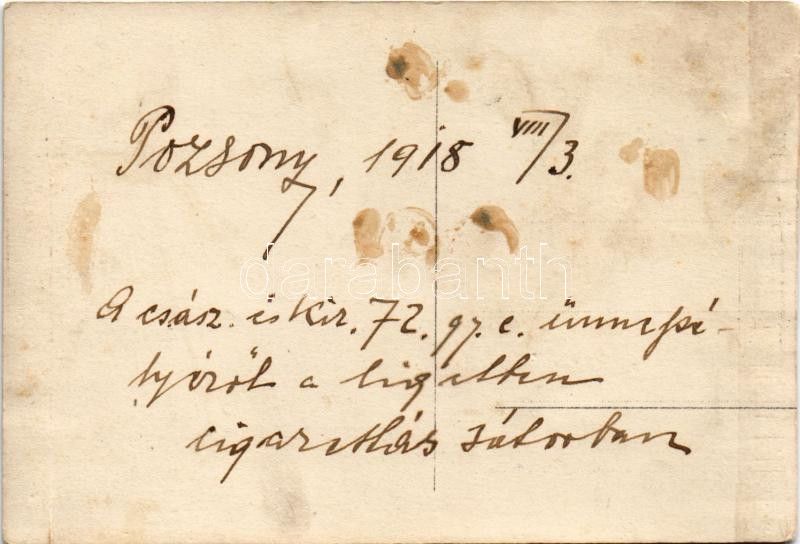 Pozsony, 1918 VIII/3.
A csász. és kir. 72. gy. e. ünnepé-
lyéről a ligetben
cigarettás sátorban
darabanth